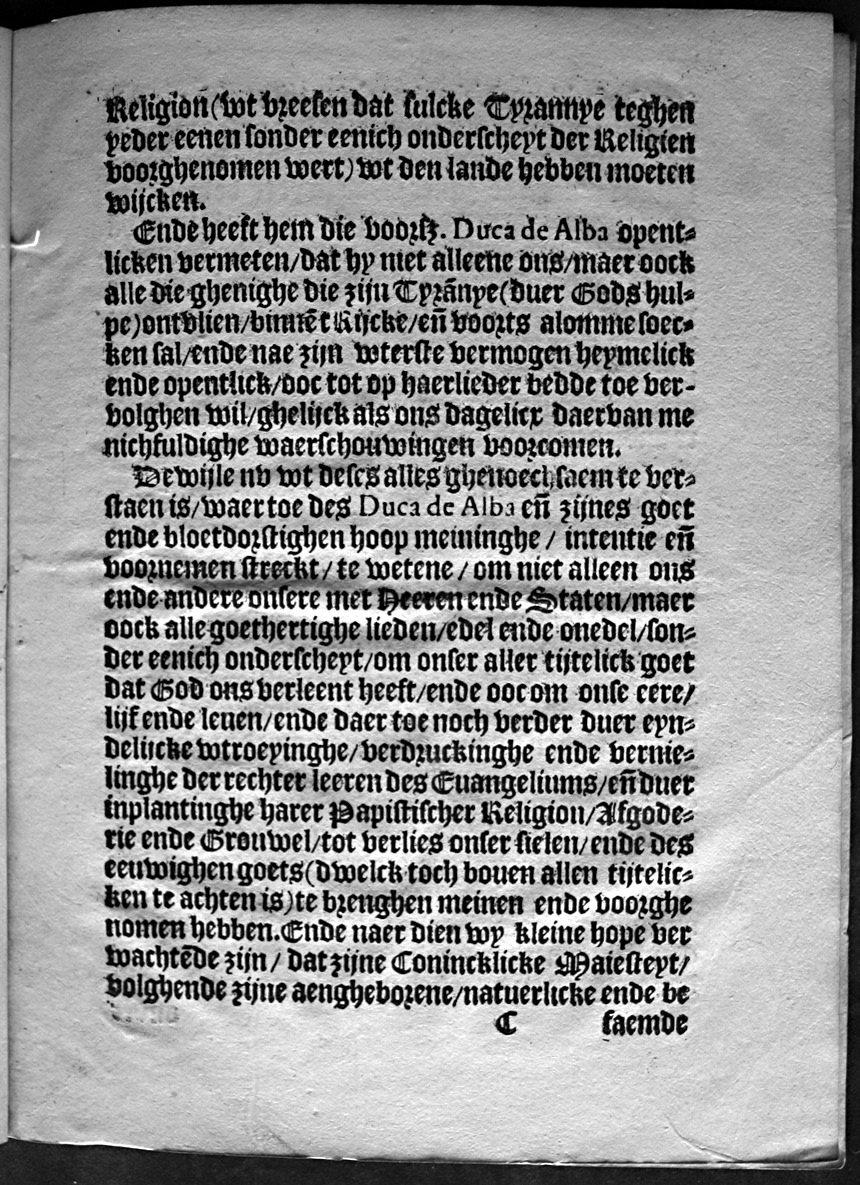 Religion (wt vreesen dat sulcke Tyrannye teghen
yeder eenen sonder eenich onderscheyt der Religien
voorghenomen wert) wt den lande hebben moeten
wijcken.
Ende heeft hem die voorsz. Duca de Alba opent⸗
licken vermeten/dat hy niet alleene ons/maer oock
alle die ghenighe die zijn Tyrãnye (duer Gods hul⸗
pe) ontvlien/binnẽt Rijcke/eñ voorts alomme soec⸗
ken sal/ende nae zijn wterste vermogen heymelick
ende opentlick/ooc tot op haerlieder bedde toe ver-
volghen wil/ghelijck als ons dagelicx daervan me
nichfuldighe waerschouwingen voorcomen.
Dewijle nv wt deses alles ghenoechsaem te ver⸗
staen is/waer toe des Duca de Alba eñ zijnes goet
ende bloetdorstighen hoop meininghe / intentie eñ
voornemen streckt/te wetene / om niet alleen ons
ende andere onsere met Heeren ende Staten/maer
oock alle goethertighe lieden/edel ende onedel/son⸗
der eenich onderscheyt/om onser aller tijtelick goet
dat God ons verleent heeft/ende ooc om onse eere/
lijf ende leuen/ende daer toe noch verder duer eyn⸗
delijcke wtroeyinghe/verdruckinghe ende vernie⸗
linghe der rechter leeren des Euangeliums/eñ duer
inplantinghe harer Papistischer Religion/Afgode⸗
rie ende Grouwel/tot verlies onser sielen/ende des
eeuwighen goets (dwelck toch bouen allen tijtelic⸗
ken te achten is) te brenghen meinen ende voorghe
nomen hebben. Ende naer dien wy kleine hope ver
wachtẽde zijn / dat zijne Conincklicke Maiesteyt/
volghende zijne aengheborene/natuerlicke ende be
C saemde